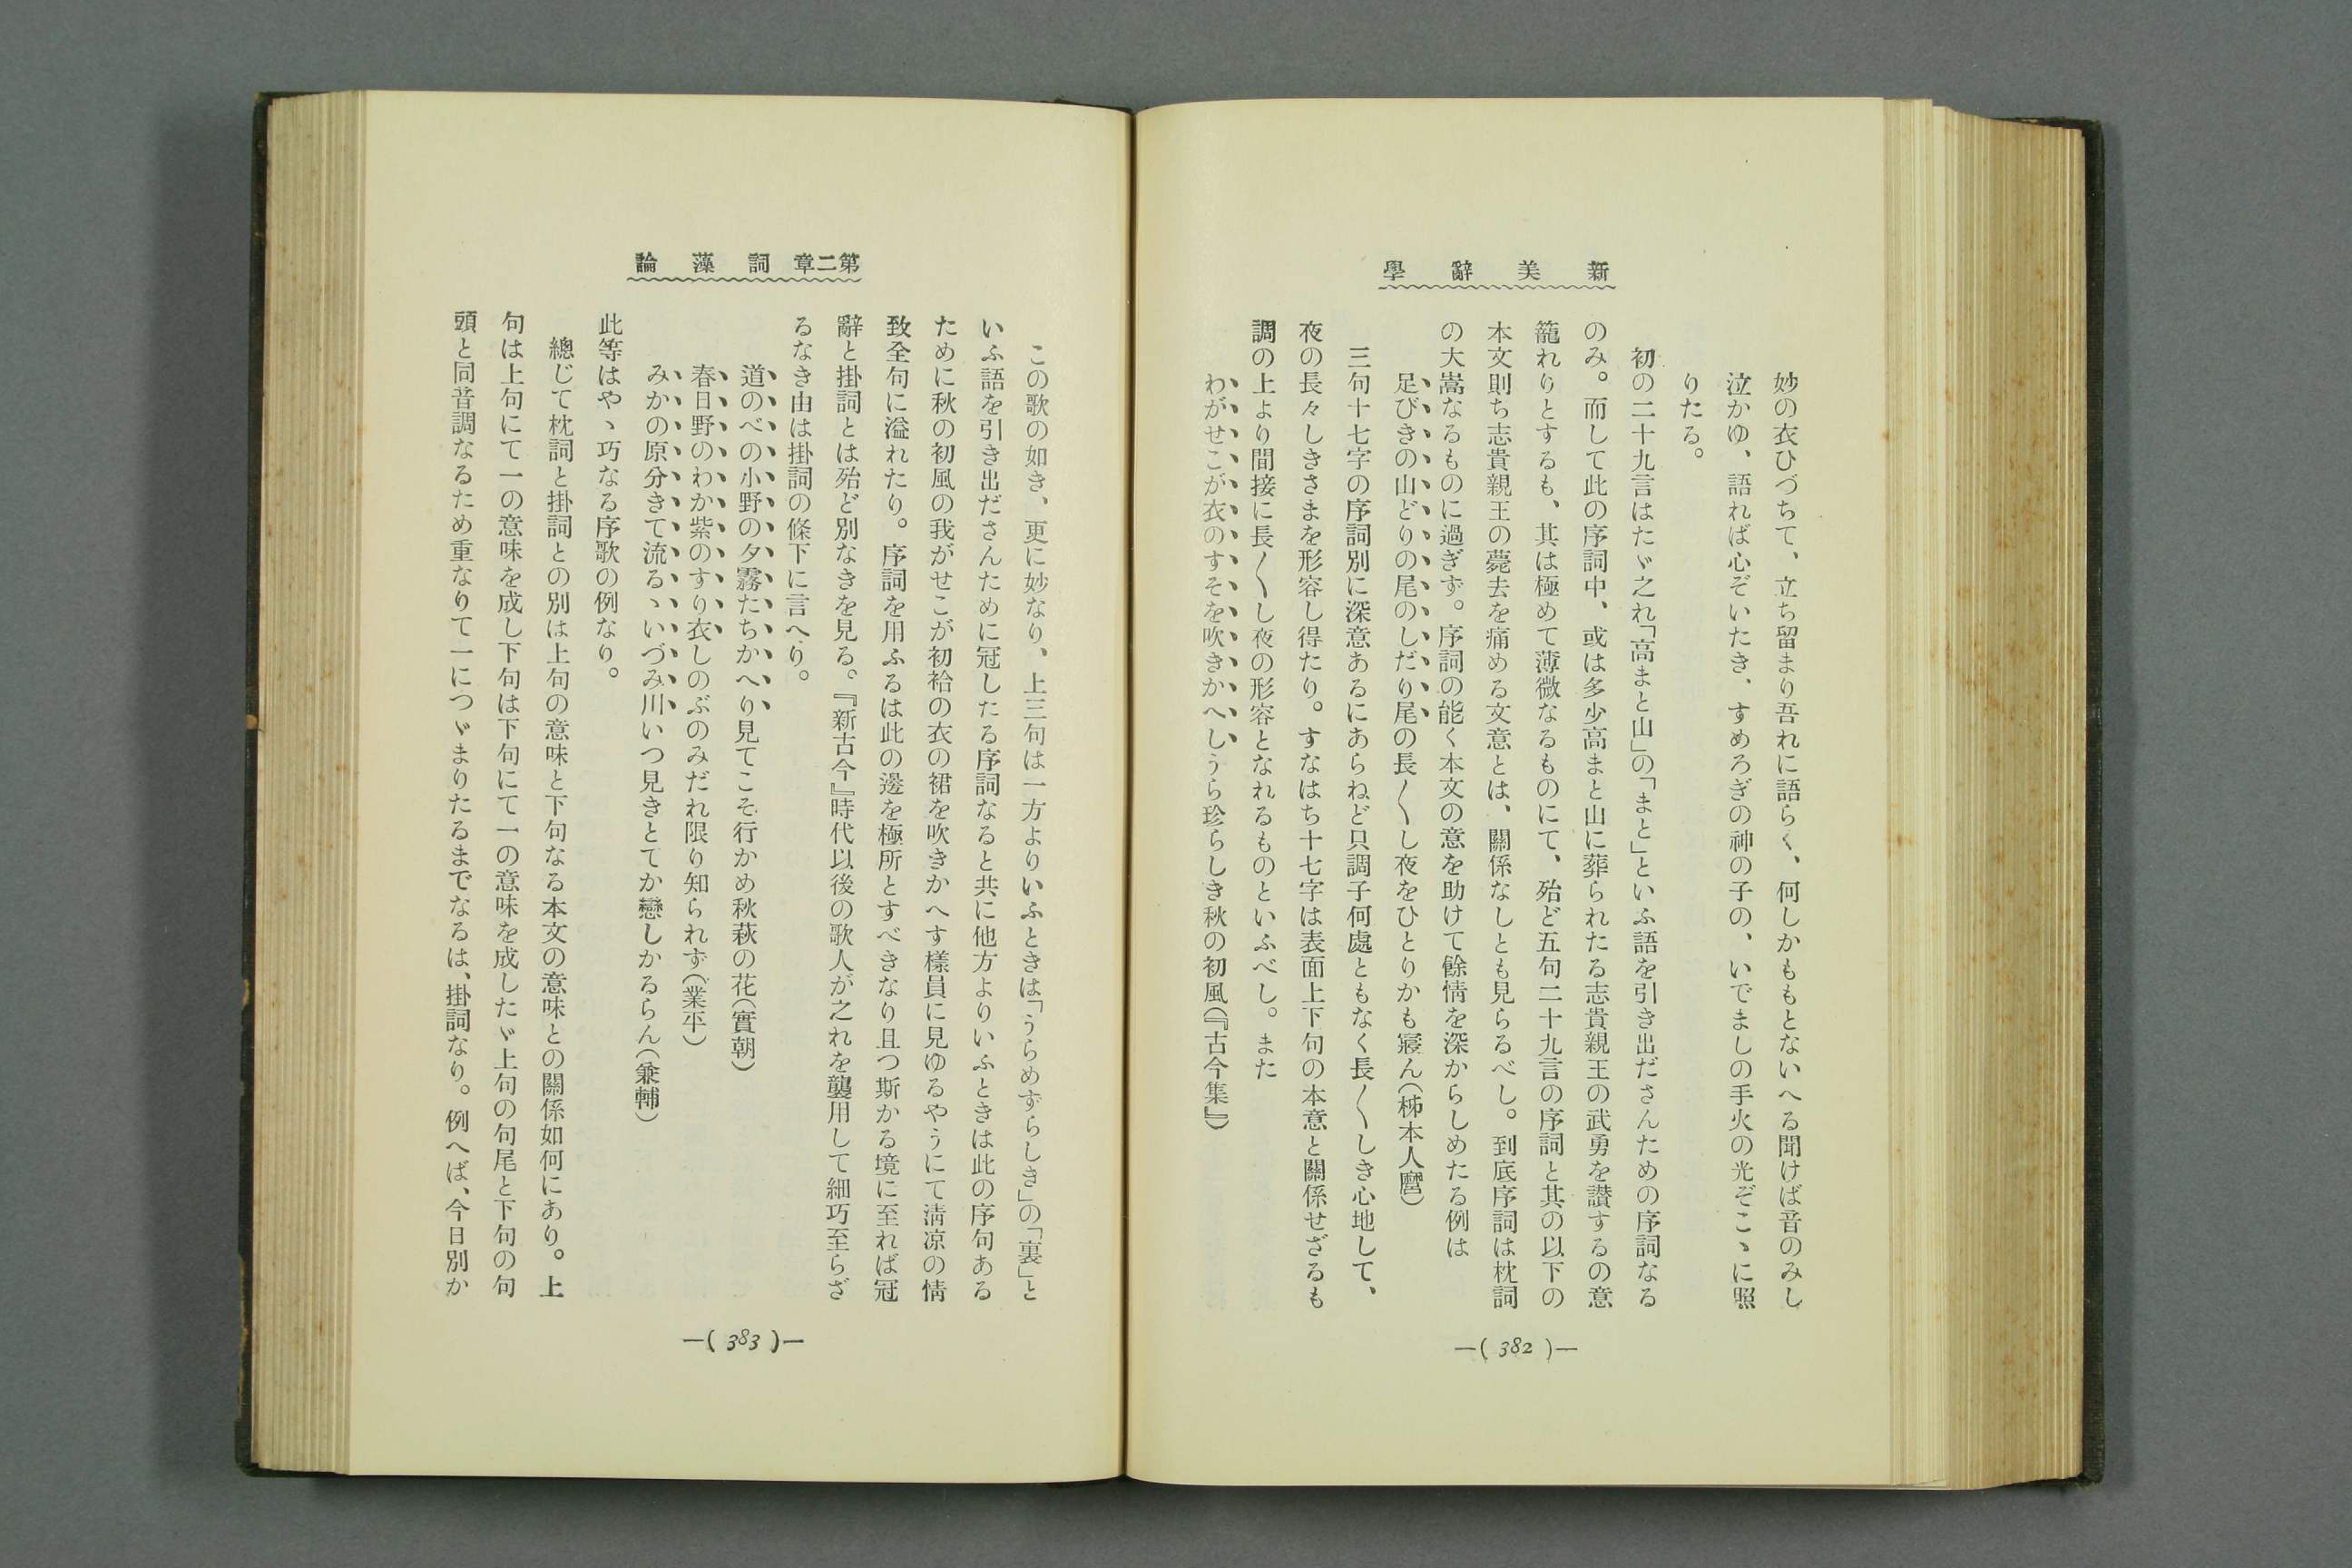 新美辭學
妙の衣ひづちて、立ち留まり吾れに語らく、何しかももとないへる聞けば音のみし
泣かゆ、語れば心ぞいたき、すめろぎの神の子の、いでましの手火の光ぞこゝに照
りたる。
初の二十九言はたゞ之れ「高まと山」の「まと」といふ語を引き出ださんための序詞なる
のみ。而して此の序詞中、或は多少高まと山に葬られたる志貴親王の武勇を讃するの意
籠れりとするも、其は極めて薄微なるものにて、殆ど五句二十九言の序詞と其の以下の
本文則ち志貴親王の薨去を痛める文意とは、關係なしとも見らるべし。到底序詞は枕詞
の大嵩なるものに過ぎず。序詞の能く本文の意を助けて餘情を深からしめたる例は
足びきの山どりの尾のしだり尾の長〱し夜をひとりかも寢ん(柹本人麿)
三句十七字の序詞別に深意あるにあらねど只調子何處ともなく長〱しき心地して、
夜の長々しきさまを形容し得たり。すなはち十七字は表面上下句の本意と關係せざるも
調の上より間接に長〱し夜の形容となれるものといふべし。また
わがせこが衣のすそを吹きかへしうら珍らしき秋の初風(『古今集』)
—( 382 )—
第二章 詞藻論
この歌の如き、更に妙なり、上三句は一方よりいふときは「うらめずらしき」の「裏」と
いふ語を引き出ださんために冠したる序詞なると共に他方よりいふときは此の序句ある
ために秋の初風の我がせこが初袷の衣の裙を吹きかへす樣員に見ゆるやうにて淸凉の情
致全句に溢れたり。序詞を用ふるは此の邊を極所とすべきなり且つ斯かる境に至れば冠
辭と掛詞とは殆ど別なきを見る。『新古今』時代以後の歌人が之れを襲用して細巧至らざ
るなき由は掛詞の條下に言へり。
道のべの小野の夕霧たちかへり見てこそ行かめ秋萩の花(實朝)
春日野のわか紫のすり衣しのぶのみだれ限り知られず(業平)
みかの原分きて流るゝいづみ川いつ見きとてか戀しかるらん(兼輔)
此等はやゝ巧なる序歌の例なり。
總じて枕詞と掛詞との別は上句の意味と下句なる本文の意味との關係如何にあり。上
句は上句にて一の意味を成し下句は下句にて一の意味を成したゞ上句の句尾と下句の句
頭と同音調なるため重なりて一につゞまりたるまでなるは、掛詞なり。例へば、今日別か
—( 383 )—